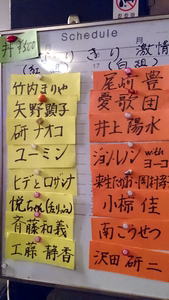 Schedule
井 4500
月
きり 激情
(紅組) (白組)
竹内まりや
矢野顕子
研ナオコ
ユーミン
ヒデとロザンナ
悦ちゃん
斉藤和義
工藤静香
尾崎 豊
愛歌団
井上陽水
ジョンレン with ヨーコ
来生たかお
小椋 佳
南こうせつ
沢田研二